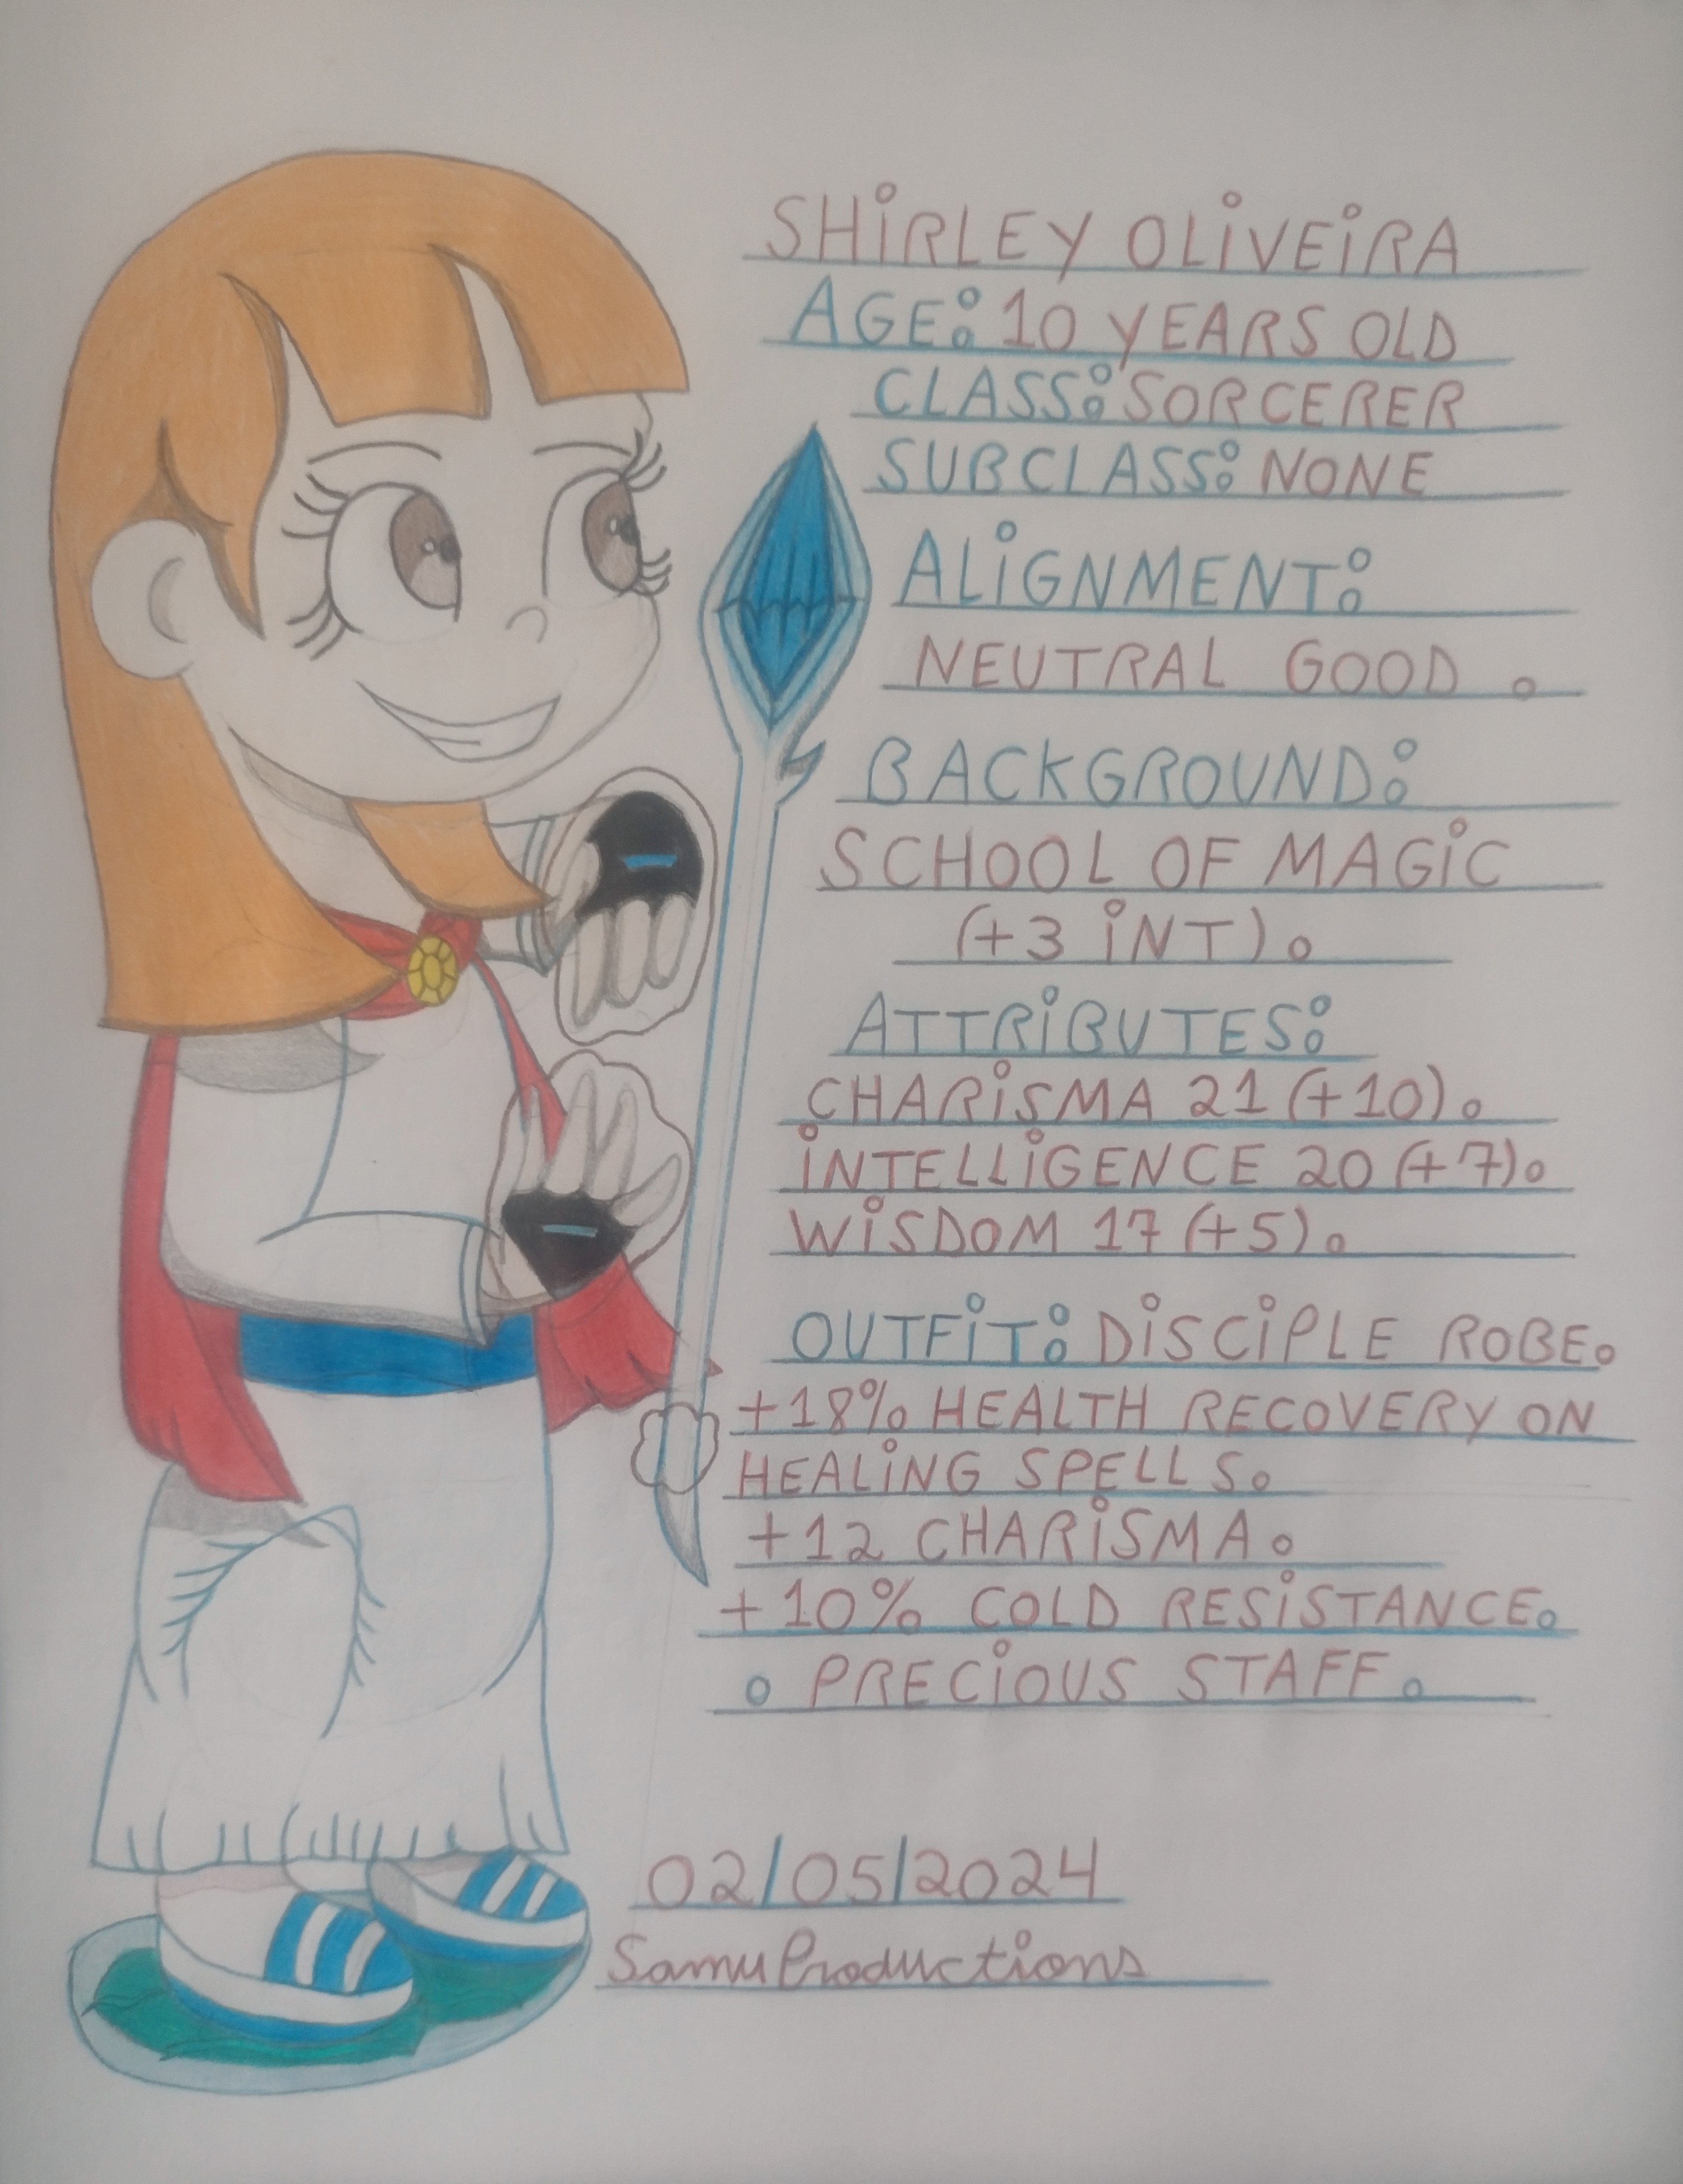 SHiRLEY OLiVEiRA
AGE: 10 YEARS OLD
CLASS: SORCERER
SUBCLASS: NONE
ALiGNMENT:
NEUTRAL GOOD.
BACKGROUND:
SCHOOL OF MAGiC
(+3 iNT).
ATTRiBUTES:
CHARiSMA 21 (+10).
iNTELLiGENCE 20 (+7).
WiSDOM 17 (+5).
OUTFiT: DiSCiPLE ROBE.
+18% HEALTH RECOVERY ON
HEALiNG SPELLS.
+12 CHARiSMA.
+10% COLD RESiSTANCE.
. PRECiOUS STAFF.
02/05/2024
SamuProductions